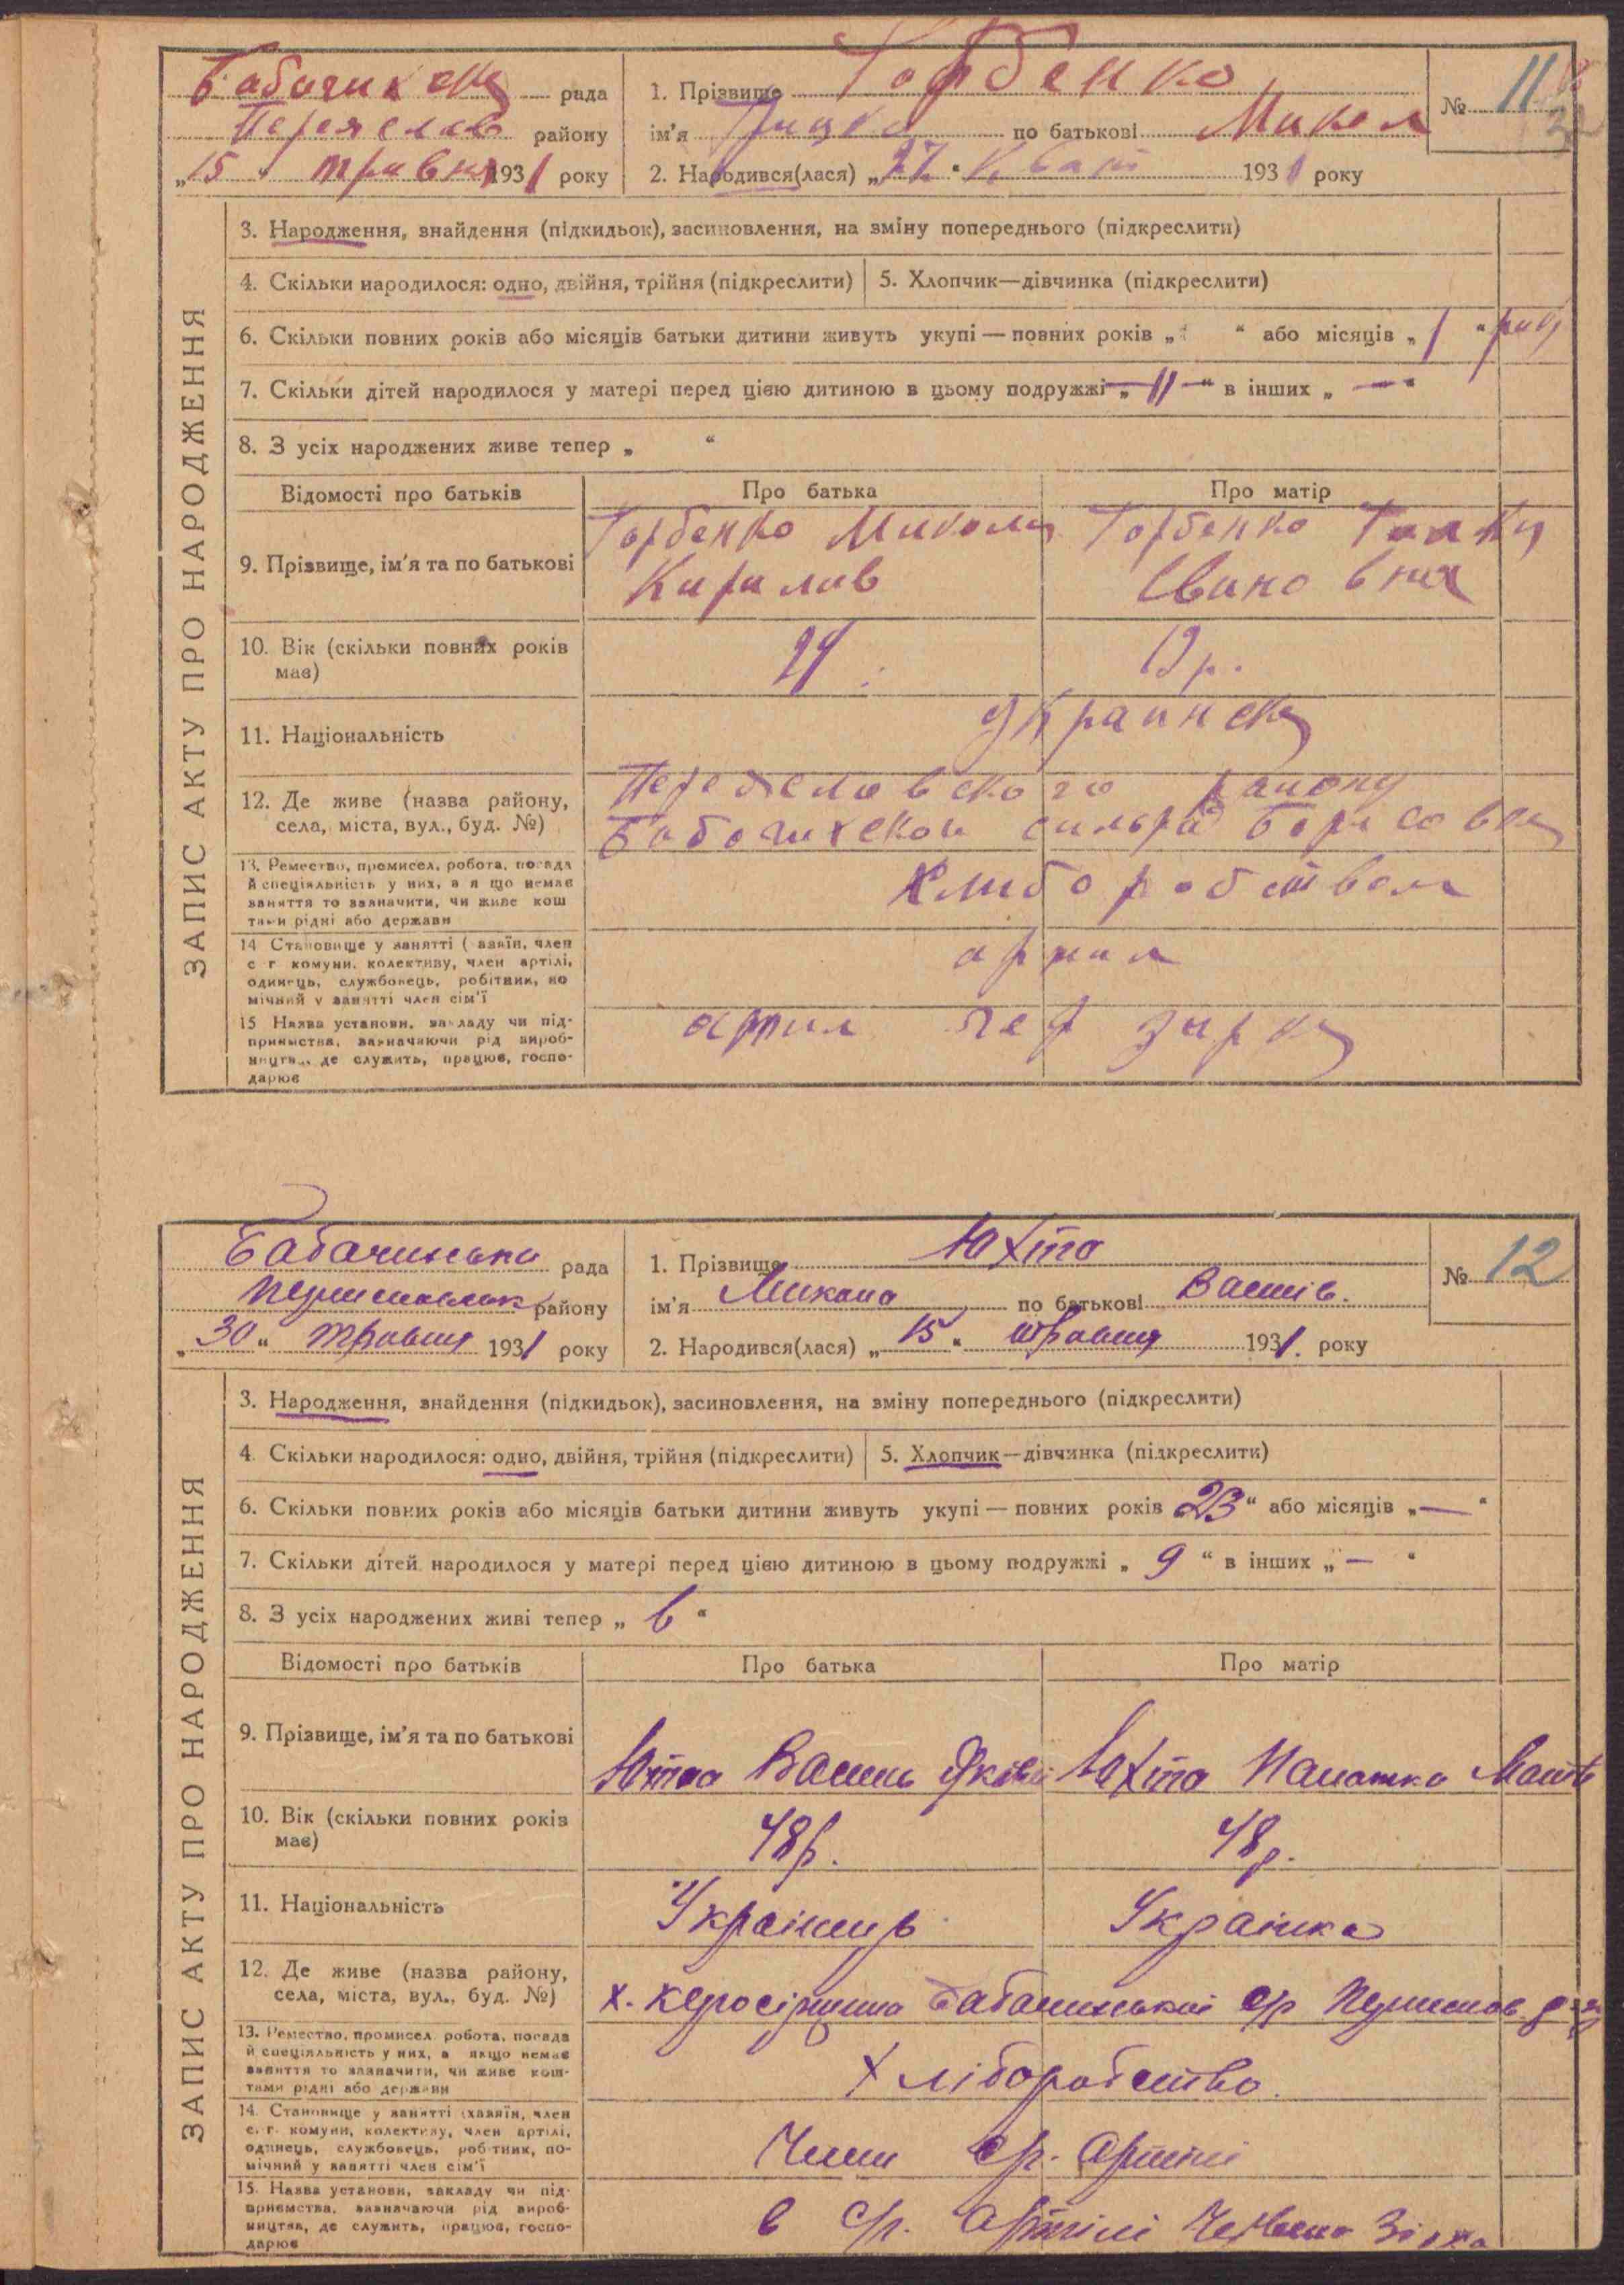 Бабачихска рада
Переяслав району
„15" травня 1931 року
1. Прізвище Горбенко
ім'я по батькові Микол
2. Народився(лася) „27" Кват 1931 року
№ 11
ЗАПИС АКТУ ПРО НАРОДЖЕННЯ
3. Народження, знайдення (підкидьок), засиновлення, на зміну попереднього (підкреслити)
4. Скільки народилося: одно, двійня, трійня (підкреслити) 5. Хлопчик—дівчинка (підкреслити)
6. Скільки повних років або місяців батьки дитини живуть укупі — повних років „ “ або місяців „ 1 “
7. Скільки дітей народилося у матері перед цією дитиною в цьому подружжі „ — 11 — “ в інших „ — “
8. З усіх народжених живе тепер „ “
Відомості про батьків Про батька Про матір
9. Прізвище, ім'я та по батькові
Горбенко Микола Горбенко
Кирилив Ивановна
10. Вік (скільки повних років
має) 19 р.
11. Національність украинска
12. Де живе (назва району,
села, міста, вул., буд. №)
Переяславского району
Бабачихскои сильрад Борисовка
13. Ремество, промисел, робота, посада
й спеціяльність у них, а я що немає
заняття то зазначити, чи живе кош
тами рідні або держави
хлиборобством
14 Становище у занятті ( азяїн, член
с г комуни, колективу, член артілі,
одинець, службовець, робітник, по
мічний у занятті член сім'ї
артил
15 Назва установи, закладу чи під-
приємства, зазначаючи рід вироб-
ництва, де служить, працює, госпо-
дарює
артил чер зирка
Бабачихська рада
району
„30“ травня 1931 року
1. Прізвище Юхта
ім'я Микола по батькові Василів.
2. Народився(лася) „15“ травня 1931. року
№ 12
ЗАПИС АКТУ ПРО НАРОДЖЕННЯ
3. Народження, знайдення (підкидьок), засиновлення, на зміну попереднього (підкреслити)
4. Скільки народилося: одно, двійня, трійня (підкреслити) 5. Хлопчик—дівчинка (підкреслити)
6. Скільки повних років або місяців батьки дитини живуть укупі — повних років 23 “ або місяців „ — “
7. Скільки дітей народилося у матері перед цією дитиною в цьому подружжі „ 9 “ в інших „ — “
8. З усіх народжених живі тепер „ 6 “
Відомості про батьків Про батька Про матір
9. Прізвище, ім'я та по батькові
Юхта Василь Яків Юхта Палажка
10. Вік (скільки повних років
має) 48р. 48р.
11. Національність Українець Українка
12. Де живе (назва району,
села, міста, вул., буд. №)
х. Бабачихської с/р
13. Ремество, промисел, робота, посада
й спеціяльність у них, а якщо немає
заняття то зазначити, чи живе кош-
тами рідні або держави
Хліборобство.
14. Становище у занятті (хазяїн, член
с. г. комуни, колективу, член артілі,
одинець, службовець, робітник, по-
мічний у занятті член сім'ї
Член с/г. Артілі
15. Назва установи, закладу чи під-
приємства, зазначаючи рід вироб-
ництва, де служить, працює, госпо-
дарює
в с/г. Артілі Червона Зірка